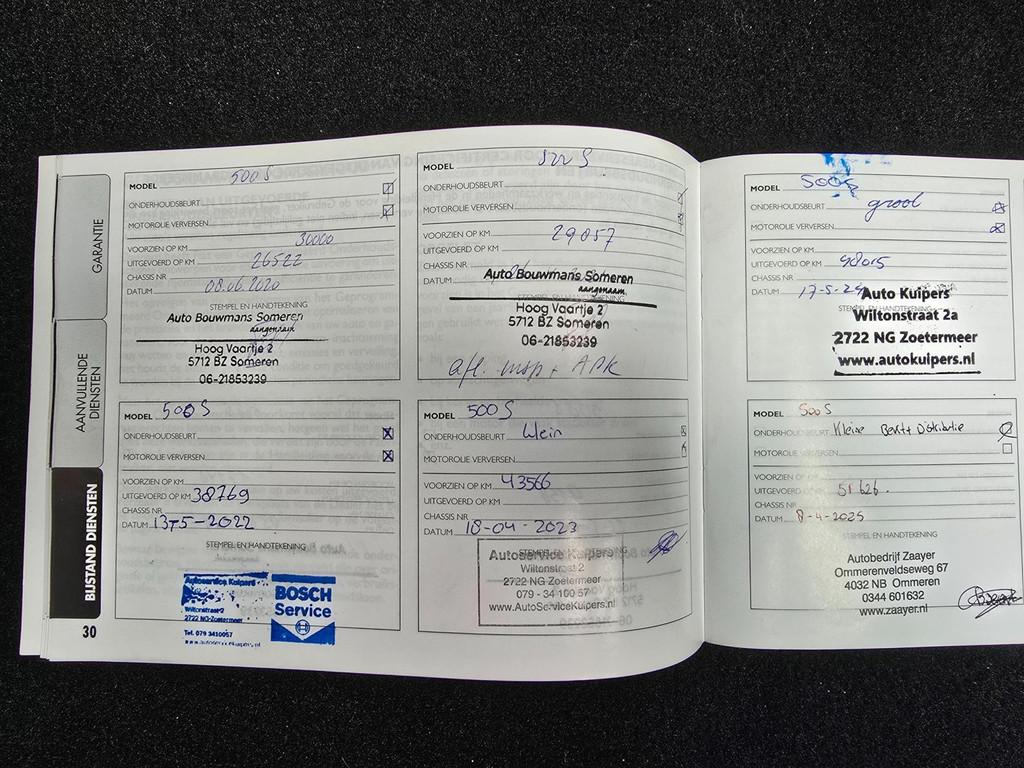 GARANTIE
AANVULLENDE
DIENSTEN
BIJSTAND DIENSTEN
30
MODEL 500 S
ONDERHOUDSBEURT
MOTOROLIE VERVERSEN
VOORZIEN OP KM 30000
UITGEVOERD OP KM 26522
CHASSIS NR
DATUM 08.06.2020
STEMPEL EN HANDTEKENING
Auto Bouwmans Someren
aangenaam
Hoog Vaartje 2
5712 BZ Someren
06-21853239
MODEL S
ONDERHOUDSBEURT
MOTOROLIE VERVERSEN
VOORZIEN OP KM
UITGEVOERD OP KM 29057
CHASSIS NR
DATUM
Auto Bouwmans Someren
aangenaam
STEMPEL EN HANDTEKENING
Hoog Vaartje 2
5712 BZ Someren
06-21853239
afl. insp + APK
MODEL 500 S
ONDERHOUDSBEURT
MOTOROLIE VERVERSEN
VOORZIEN OP KM
UITGEVOERD OP KM 38769
CHASSIS NR
DATUM 13-5-2022
STEMPEL EN HANDTEKENING
Autoservice Kuipers
Wiltonstraat 2
2722 NG Zoetermeer
Tel. 079 3410057
www.autoservicekuipers.nl
BOSCH
Service
MODEL 500 S
ONDERHOUDSBEURT klein
MOTOROLIE VERVERSEN
VOORZIEN OP KM 43566
UITGEVOERD OP KM
CHASSIS NR
DATUM 18-04-2023
Autoservice Kuipers
Wiltonstraat 2
2722 NG Zoetermeer
079 - 34 100 57
www.AutoServiceKuipers.nl
MODEL 500
ONDERHOUDSBEURT groot
MOTOROLIE VERVERSEN
VOORZIEN OP KM
UITGEVOERD OP KM 48015
CHASSIS NR
DATUM 17-5-24
Auto Kuipers
Wiltonstraat 2a
2722 NG Zoetermeer
www.autokuipers.nl
MODEL 500 S
ONDERHOUDSBEURT Kleine Beurt + Distributie
MOTOROLIE VERVERSEN
VOORZIEN OP KM
UITGEVOERD OP KM 51626.
CHASSIS NR
DATUM 8-4-2025
STEMPEL EN HANDTEKENING
Autobedrijf Zaayer
Ommerenveldseweg 67
4032 NB Ommeren
0344 601632
www.zaayer.nl